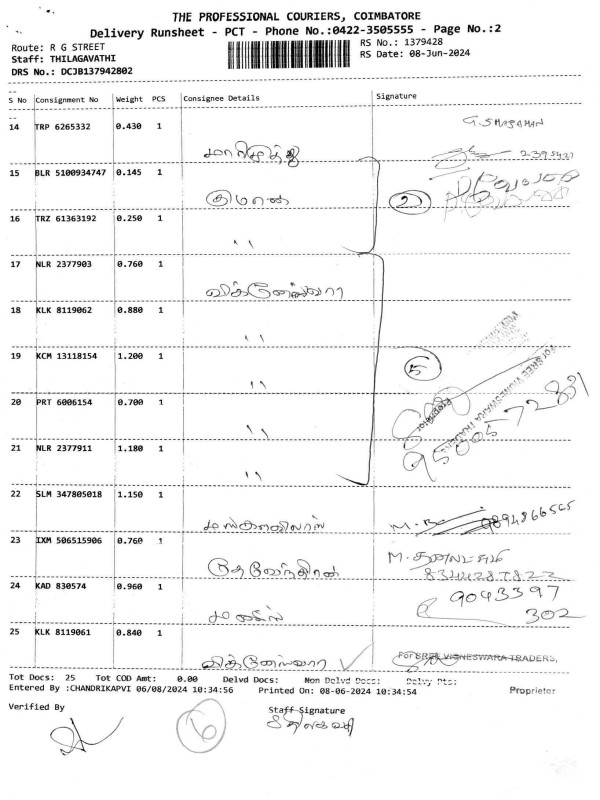 THE PROFESSIONAL COURIERS, COIMBATORE
Delivery Runsheet - PCT - Phone No.:0422-3505555 - Page No.:2
Route: R G STREET
Staff: THILAGAVATHI
DRS No.: DCJB137942802
RS No.: 1379428
RS Date: 08-Jun-2024
S No Consignment No Weight PCS Consignee Details Signature
14 TRP 6265332 0.430 1
G.SMAGAMAN
15 BLR 5100934747 0.145 1
2
16 TRZ 61363192 0.250 1
" "
17 NLR 2377903 0.760 1
விக்னேஸ்வரா
18 KLK 8119062 0.880 1
" "
19 KCM 13118154 1.200 1
" "
5
For SREE VIGNESWARA TRADERS
Proprietor
20 PRT 6006154 0.700 1
" "
95005 72831
21 NLR 2377911 1.180 1
" "
22 SLM 347805018 1.150 1
9894866565
23 IXM 506515906 0.760 1
தேவேந்திரன்
8344287822
24 KAD 830574 0.960 1
9043397
302
25 KLK 8119061 0.840 1
விக்னேஸ்வரா
For SREE VIGNESWARA TRADERS,
Proprietor
Tot Docs: 25 Tot COD Amt: 0.00 Delvd Docs: Non Delvd Docs: Delvy Pts:
Entered By :CHANDRIKAPVI 06/08/2024 10:34:56 Printed On: 08-06-2024 10:34:54
Verified By
6
Staff Signature